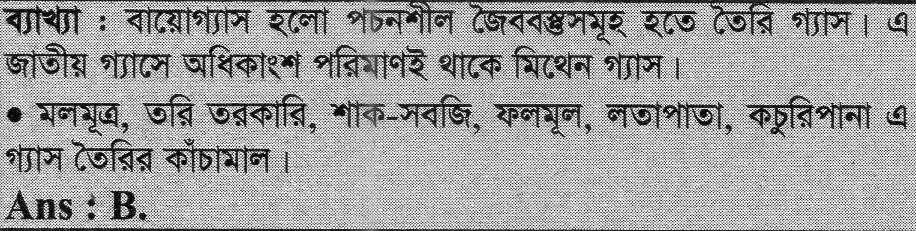 ব্যাখ্যা : বায়োগ্যাস হলো পচনশীল জৈববস্তুসমূহ হতে তৈরি গ্যাস। এ
জাতীয় গ্যাসে অধিকাংশ পরিমাণই থাকে মিথেন গ্যাস।
● মলমূত্র, তরি তরকারি, শাক-সবজি, ফলমূল, লতাপাতা, কচুরিপানা এ
গ্যাস তৈরির কাঁচামাল।
Ans : B.